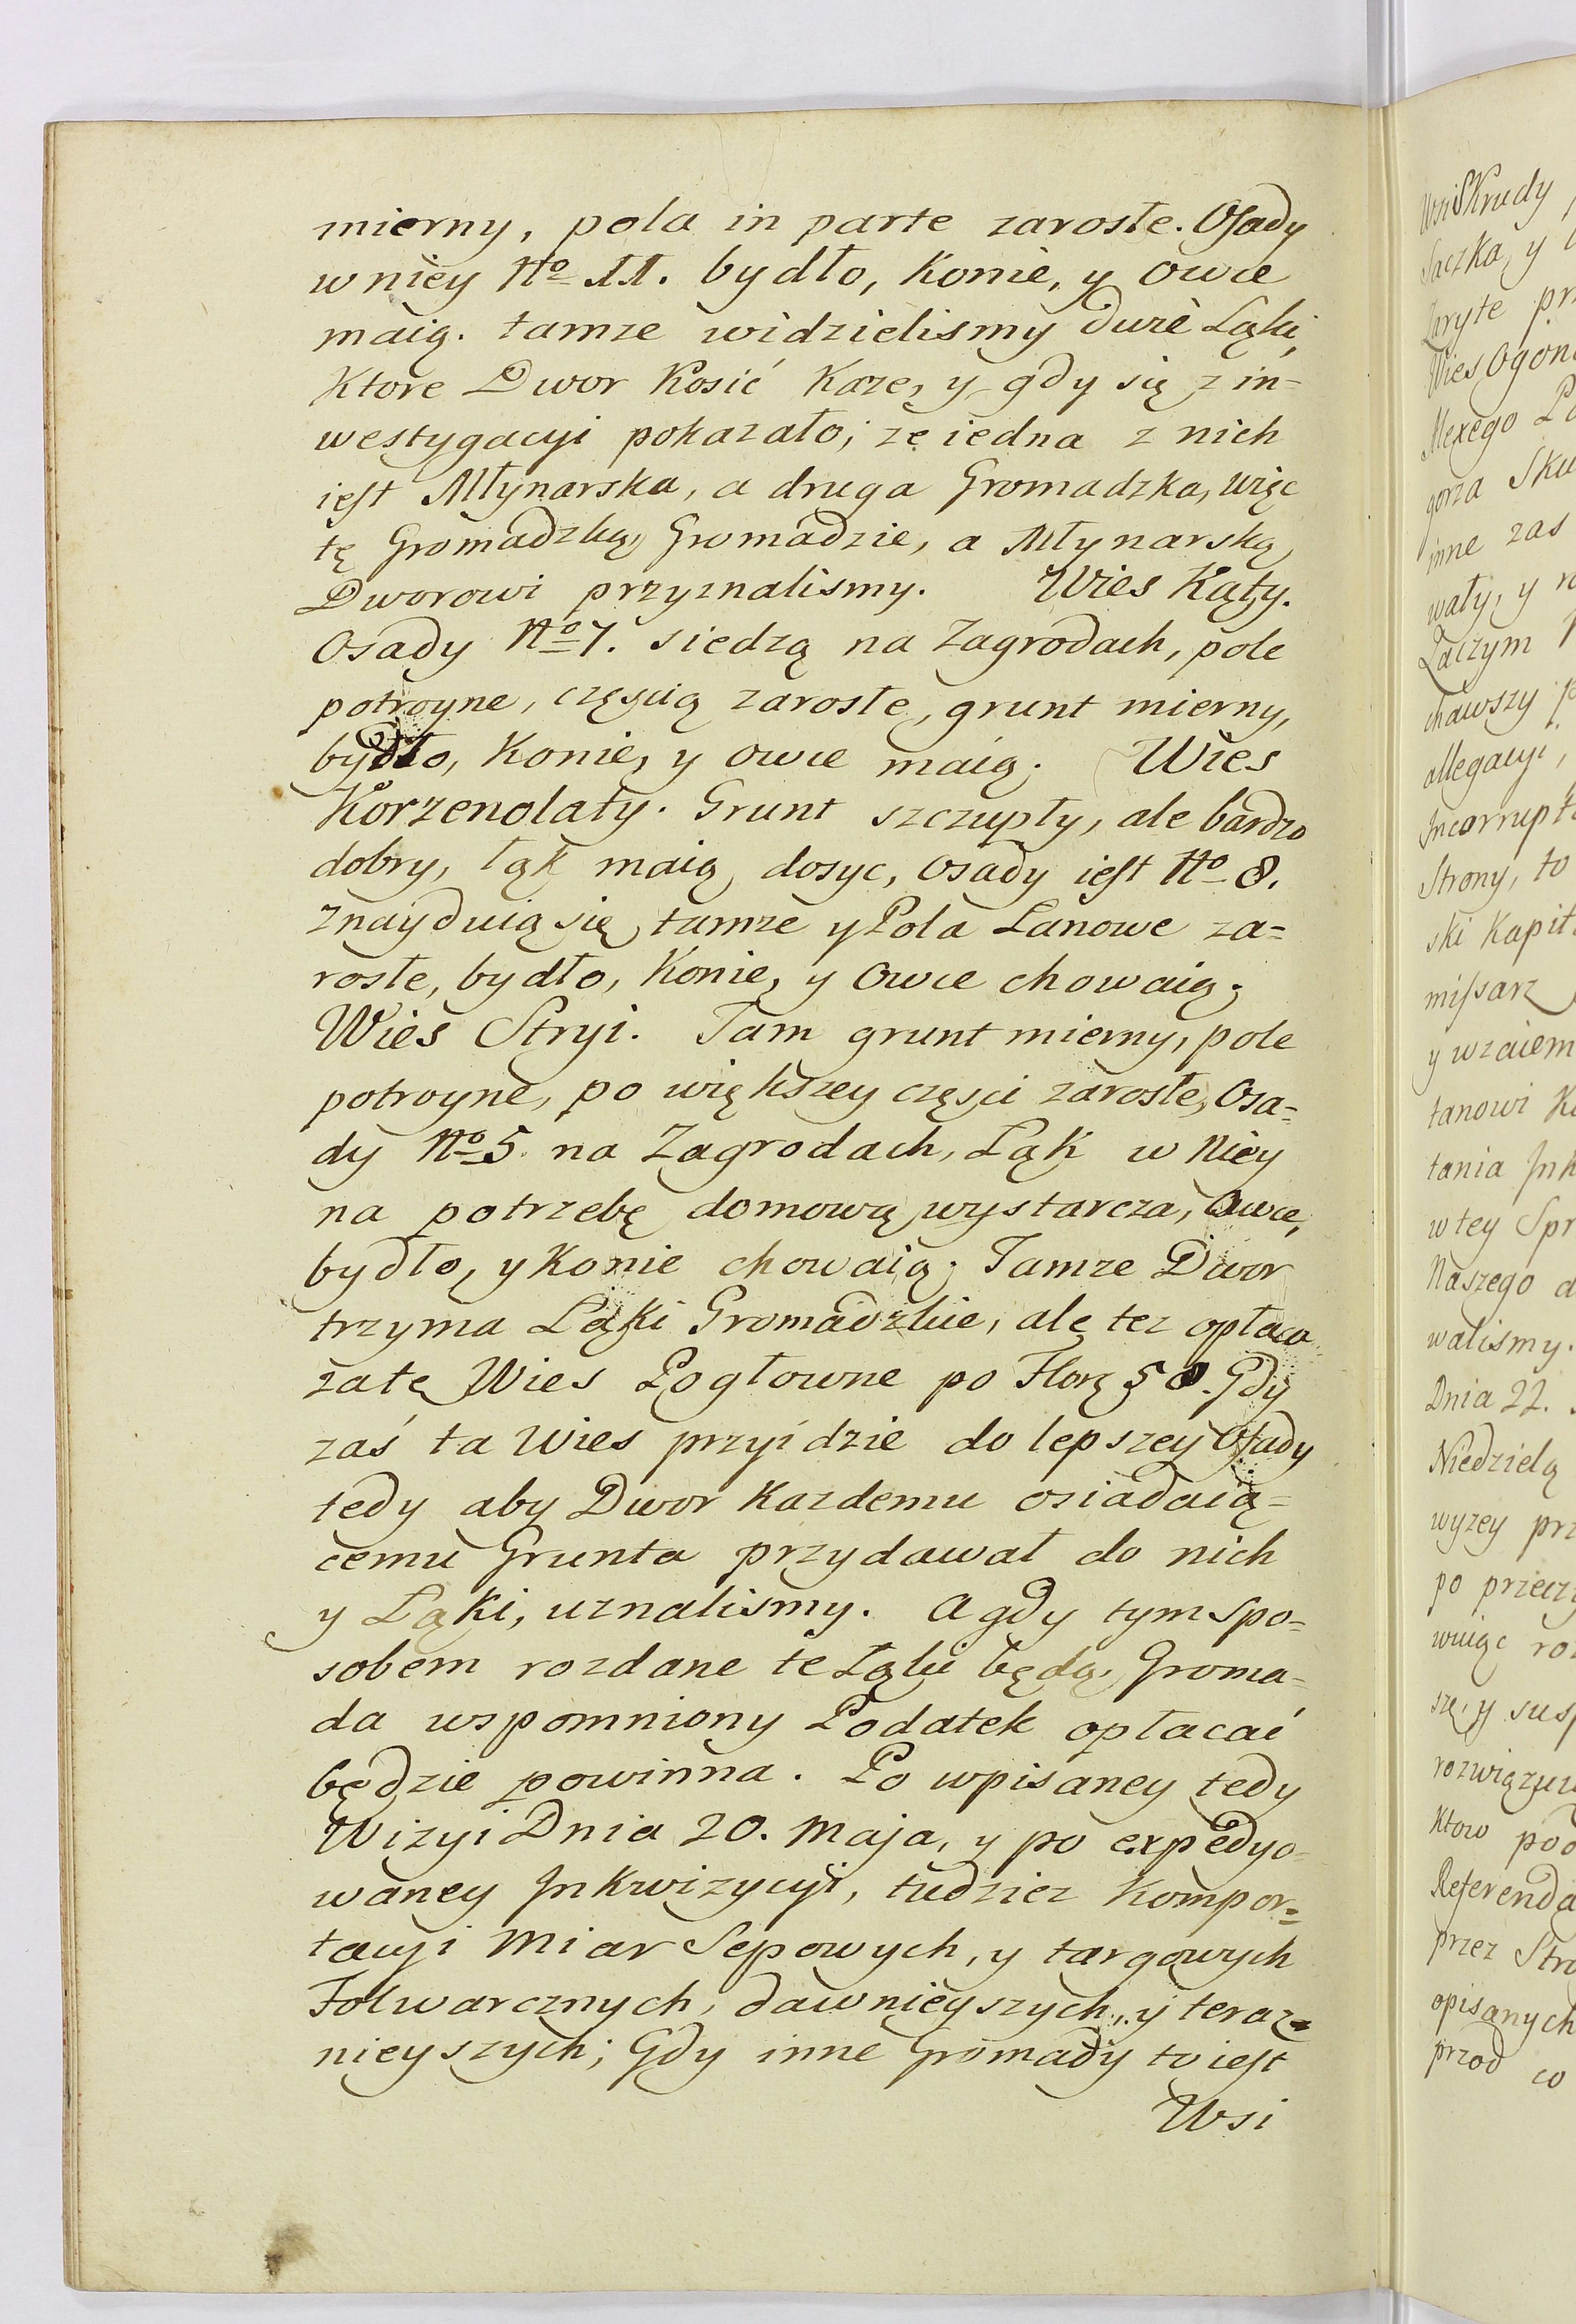 mierny, pola in parte zarosłe. Osady
w niey No 11. bydło, Konie, y owce
maią. tamże widzielismy duże Łąki,
Ktore Dwor Kosić Kaze, y gdy się z in=
westygacyi pokazało, ze iedna z nich
iest Młynarska, a druga Gromadzka, więc
tę Gromadzką, Gromadzie, a Młynarską,
Dworowi przyznalismy. Wies Kąty.
Osady No 7. siedzą na Zagrodach, pole
potroyne, częscią zarosłe, grunt mierny,
bydło, Konie, y owce maią. Wies
Korzenolaty. Grunt szczupły, ale bardzo
dobry, łąk maią dosyc, osady iest No 8.
Znayduią się tamze y Pola Łanowe za=
rosłe, bydło, Konie, y Owce chowaią.
Wies Stryi. Tam grunt mierny, pole
potroyne, po większey częsci zarosłe, Osa=
dy No 5. na Zagrodach, Łąk w niey
na potrzebę domową wystarcza, Owce,
bydło, y Konie chowaią. Tamze Dwor
trzyma Łąki Gromadzkie, ale tez opłaca
za tę Wies Pogłowne po Florę 50. Gdy
zaś ta Wies przyidzie do lepszey Osady
tedy aby Dwor Kazdemu osiadaią=
cemu Grunta przydawał do nich
y Łąki, uznalismy. A gdy tym spo=
sobem rozdane te Łąki będą, Groma=
da wspomniony Podatek opłacać
będzie powinna. Po wpisaney tedy
Wizyi Dnia 20. Maja, y po expedyo=
waney Inkwizycyi, tudziez Kompor=
tacyi Miar Sepowych, y targowych
Folwarcznych, dawnieyszych, y teraz=
nieyszych; Gdy inne Gromady to iest
Wsi
Wsi Skrudy
Zaryte
inne zas
wały, y
Zaczym
allegacyi,
Strony, to
ski
y wzaiem
tanowi
tania
w tey
Naszego
walismy.
Dnia 22.
Niedzielą
wyzey
po
przez
opisanych
przod co